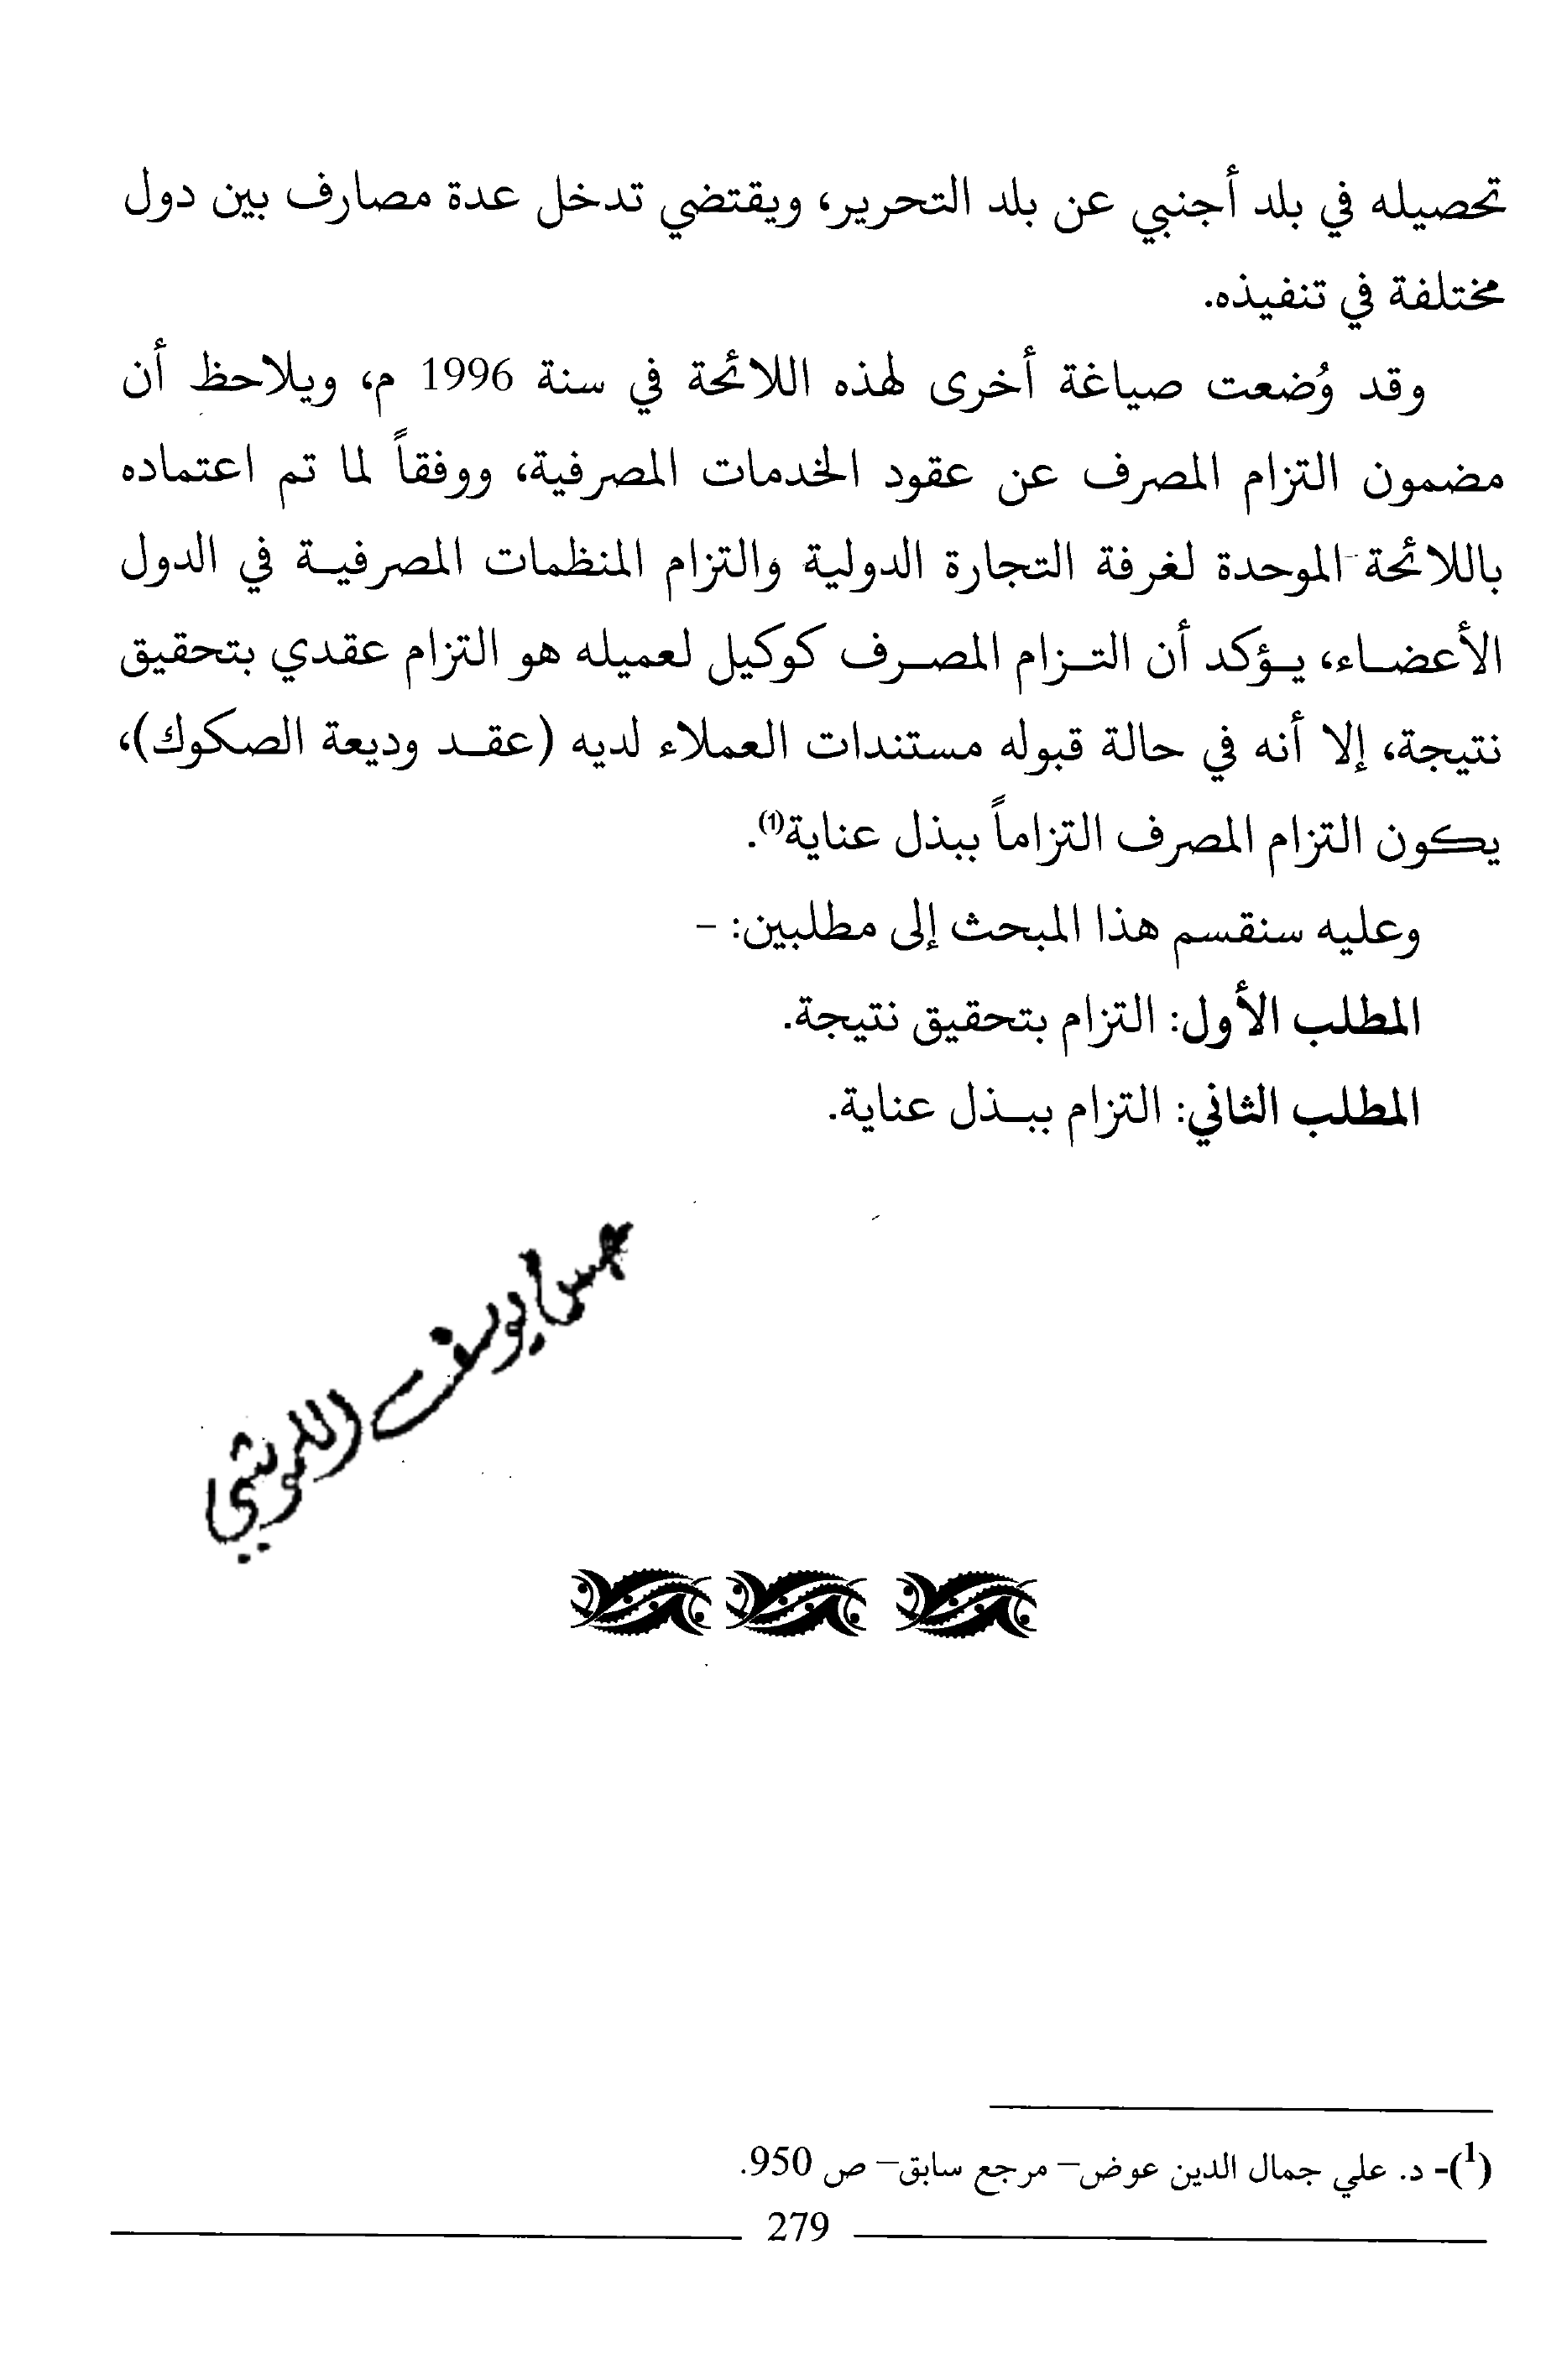 تحصيله في بلد أجنبي عن بلد التحرير، ويقتضي تدخل عدة مصارف بين دول
مختلفة في تنفيذه.
وقد وُضعت صياغة أخرى لهذه اللائحة في سنة 1996 م، ويلاحظ أن
مضمون التزام المصرف عن عقود الخدمات المصرفية، ووفقاً لما تم اعتماده
باللائحة الموحدة لغرفة التجارة الدولية والتزام المنظمات المصرفيـة في الدول
الأعضـاء، يـؤكد أن التـزام المصـرف كوكيل لعميله هو التزام عقدي بتحقيق
نتيجة، إلا أنه في حالة قبوله مستندات العملاء لديه (عقـد وديعة الصكوك)،
يكون التزام المصرف التزاماً ببذل عناية(1).
وعليه سنقسم هذا المبحث إلى مطلبين: -
المطلب الأول: التزام بتحقيق نتيجة.
المطلب الثاني: التزام ببـذل عناية.
يوسف
(1)- د. علي جمال الدين عوض– مرجع سابق– ص 950.
279